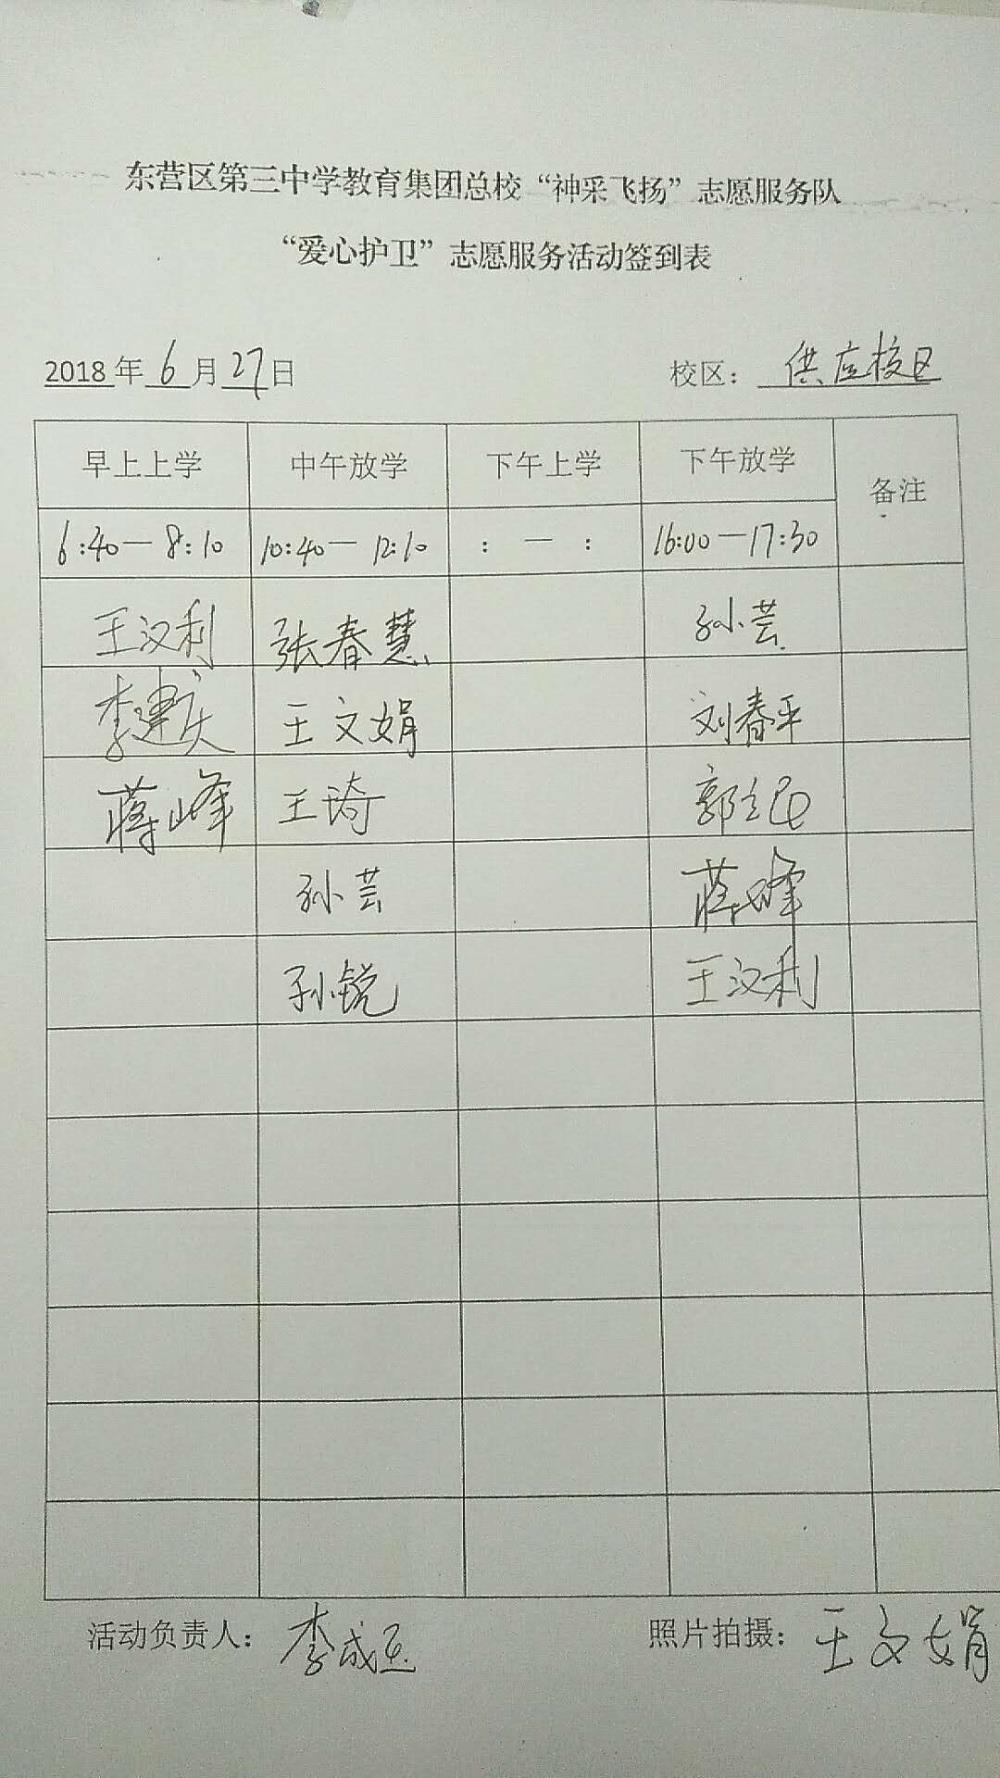 东营区第三中学教育集团总校“神采飞扬”志愿服务队
“爱心护卫”志愿服务活动签到表
2018年6月27日 校区：供应校区
早上上学 中午放学 下午上学 下午放学 备注
6:40—8:10 10:40—12:10 : — : 16:00—17:30
王汉利 张春慧 孙芸
李建庆 王文娟 刘春平
蒋峰 王琦 郭立民
孙芸 蒋峰
孙锐 王汉利
活动负责人：李成玉 照片拍摄：王文娟